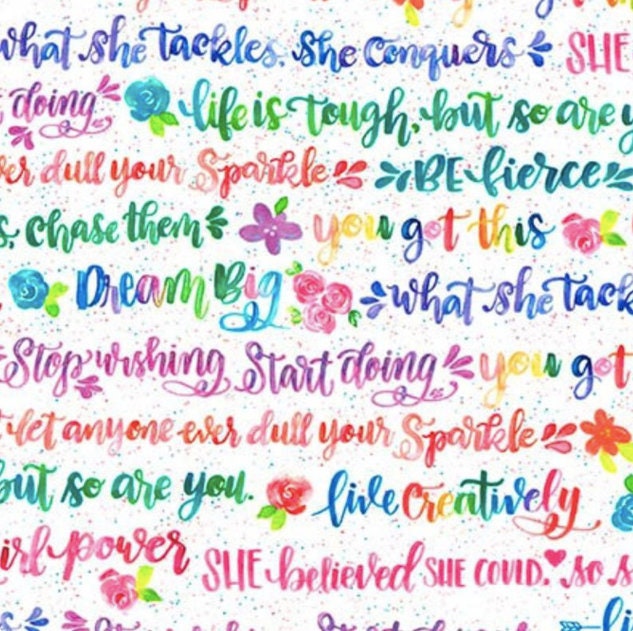 what she tackles. She Conquers SHE
doing life is tough, but so are y
ver dull your Sparkle BE fierce
s, chase them you got this
Dream Big what she tack
Stop wishing Start doing you got
let anyone ever dull your Sparkle
but so are you. live Creatively
irl power SHE believed SHE COULD. so s